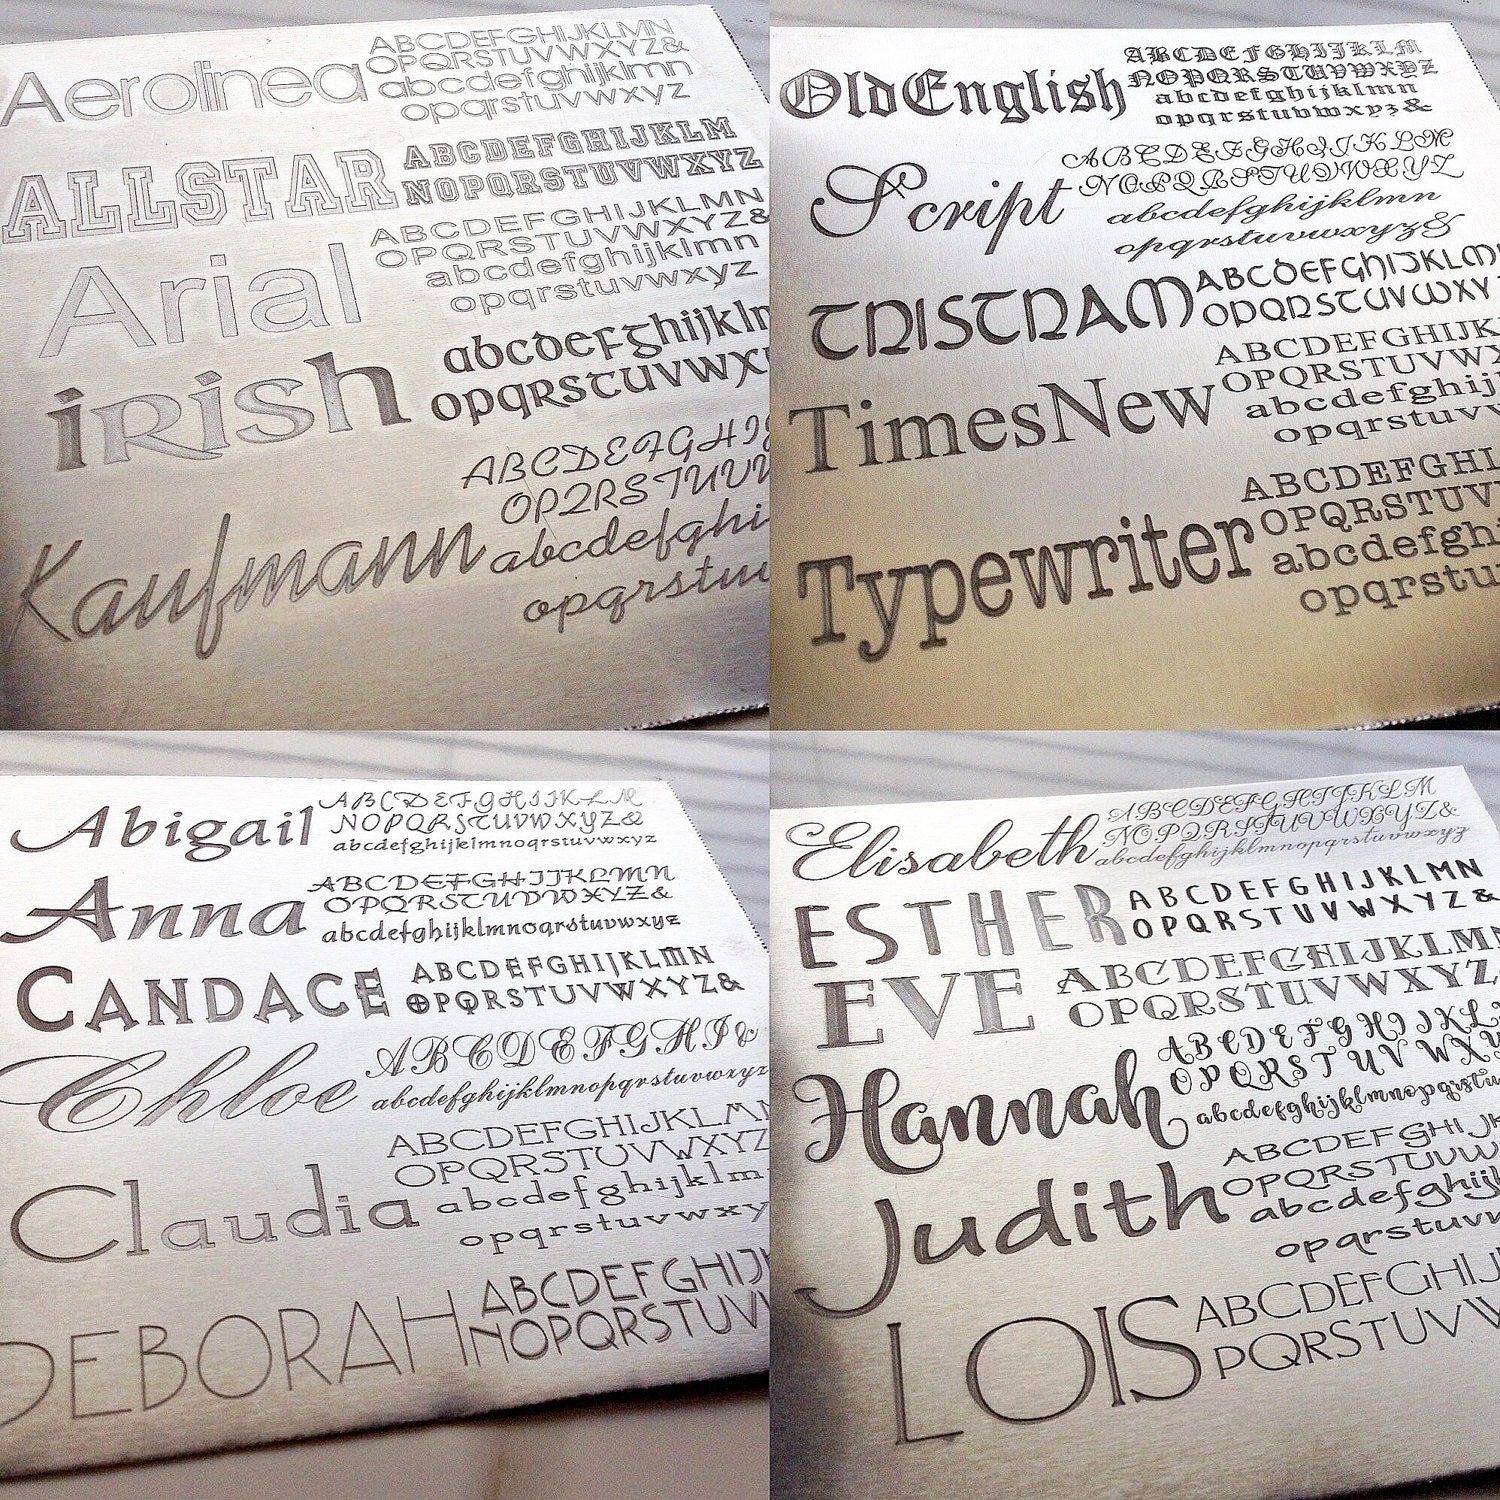 Aerolinea
ABCDEFGHIJKLMN
OPQRSTUVWXYZ&
abcdefghijklmn
opqrstuvwxyz
ALLSTAR
ABCDEFGHIJKLM
NOPQRSTUVWXYZ
Arial
ABCDEFGHIJKLMN
OPQRSTUVWXYZ&
abcdefghijklmn
opqrstuvwxyz
iRish
abcdefghijklm
opqrstuvwxy
Kaufmann
ABCDEFGHIJ
OPQRSTUVW
abcdefghi
opqrstuv
OldEnglish
ABCDEFGHIJKLM
NOPQRSTUVWXYZ
abcdefghijklmn
opqrstuvwxyz&
Script
ABCDEFGHIJKLM
NOPQRSTUVWXYZ
abcdefghijklmn
opqrstuvwxyz&
TRISTRAM
ABCDEFGHIJKLM
OPQRSTUVWXY
TimesNew
ABCDEFGHIJK
OPQRSTUVWX
abcdefghij
opqrstuvw
Typewriter
ABCDEFGHI
OPQRSTUV
abcdefghi
opqrstu
Abigail
ABCDEFGHIJKLM
NOPQRSTUVWXYZ&
abcdefghijklmnoqrstuvwxyz
Anna
ABCDEFGHIJKLMN
OPQRSTUVWXYZ&
abcdefghijklmnoqrstuvwxyz
CANDACE
ABCDEFGHIJKLMN
OPQRSTUVWXYZ&
Chloe
ABCDEFGHI&
abcdefghijklmnopqrstuvwxyz
Claudia
ABCDEFGHIJKLMN
OPQRSTUVWXYZ
abcdefghijklm
opqrstuvwxy
DEBORAH
ABCDEFGHIJ
NOPQRSTUVW
Elisabeth
ABCDEFGHIJKLM
NOPQRSTUVWXYZ&
abcdefghijklmnopqrstuvwxyz
ESTHER
ABCDEFGHIJKLMN
OPQRSTUVWXYZ&
EVE
ABCDEFGHIJKLMN
OPQRSTUVWXYZ
Hannah
ABCDEFGHIJKL
OPQRSTUVWXY
abcdefghijklmnopqrstu
Judith
ABCDEFGHIJK
OPQRSTUVW
abcdefghijk
opqrstuvw
LOIS
ABCDEFGHIJ
PQRSTUVW